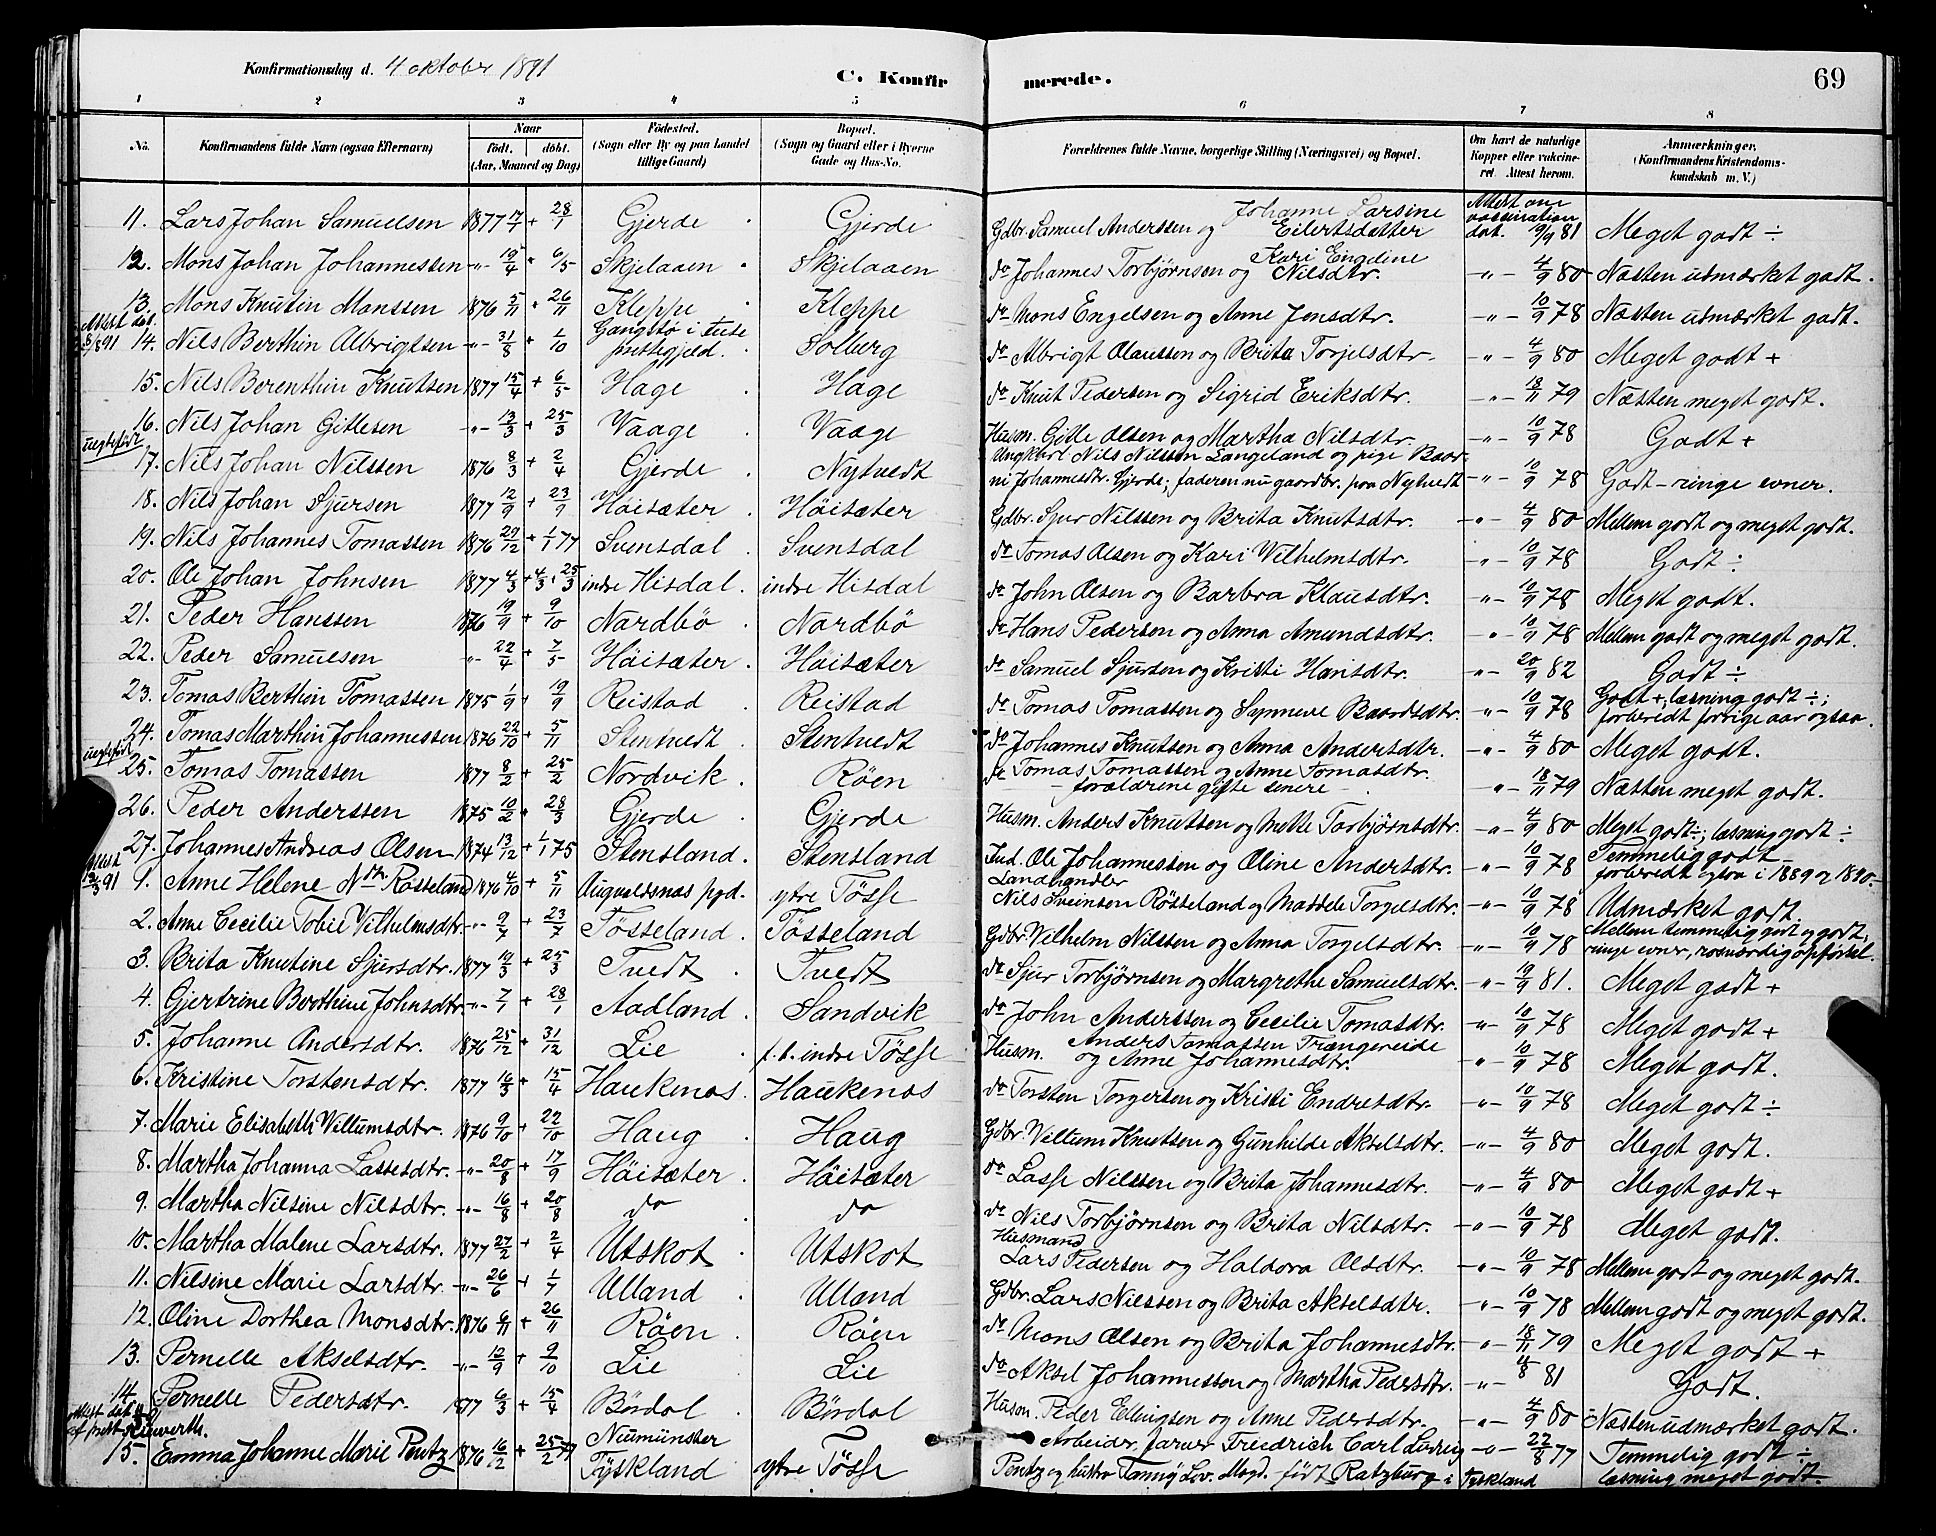 Konfirmationsdag d. 4 oktober 1891 C. Konfirmerede. 69
1 2 3 4 5 6 7 8
No. Konfirmandens fulde Navn (ogsaa Efternavn) Naar födt. döbt. (Aar, Maaned og Dag) Födested. (Sogn eller By og paa Landet tillige Gaard) Bopæl. (Sogn og Gaard eller i Byerne Gade og Hus-No. Forældrenes fulde Navne, borgerlige Stilling (Næringsvei) og Bopæl. Om havt de naturlige Kopper eller vaccineret. Attest herom. Anmærkninger. (Konfirmandens Kristendomskundskab m. V.)
11. Lars Johan Samuelsen 1877 17/1 + 28/1 Gjerde Gjerde Gdbr. Samuel Anderssen og Johanne Larsine Eilertsdatter Attest om vaccination dat. 19/9 81 Meget godt ÷
12. Mons Johan Johannessen -"- 19/4 + 6/5 Skjelaaen Skjelaaen do Johannes Torbjørnsen og Kari Engeline Nilsdtr. -"- 4/9 80 Næsten udmærket godt.
13. Mons Knutsen Monssen 1876 5/11 + 26/11 Kleppe Kleppe do Mons Engelsen og Anne Jensdtr. -"- 10/9 78 Næsten udmærket godt.
Attest dat. 8/891 14. Nils Berthin Albrigtsen -"- 31/8 + 1/10 Gangstø i præstegjeld. Solberg do Albrigt Olaussen og Brita Torjelsdtr. -"- 4/9 80 Meget godt +
15. Nils Berenthin Knutsen 1877 15/4 + 6/5 Hage Hage do Knut Pedersen og Sigrid Eriksdtr. -"- 18/11 79 Næsten meget godt.
16. Nils Johan Gitlesen -"- 13/3 + 25/3 Vaage Vaage Husm. Gitle Olsen og Martha Nilsdtr. -"- 10/9 78 Godt +
uegtefødt 17. Nils Johan Nilssen 1876 8/3 + 2/4 Gjerde Nytvedt Ungkarl Nils Nilssen Langeland og pige Baarni Johannesdtr. Gjerde; faderen nu gaardbr. paa Nytvedt -"- 10/9 78 Godt - ringe evner.
18. Nils Johan Sjursen 1877 12/9 + 23/9 Höisæter Höisæter Gdbr. Sjur Nilssen og Brita Knutsdtr. -"- 4/9 80 Mellem godt og meget godt.
19. Nils Johannes Tomassen 1876 29/12 + 1/1 77 Svensdal Svensdal do Tomas Olsen og Kari Vilhelmsdtr. -"- 10/9 78 Godt ÷
20. Ole Johan Johnsen 1877 4/3 + 4/3 . 25/3 indre Hisdal indre Hisdal do John Olsen og Barbra Klausdtr. -"- 10/9 78 Meget godt.
21. Peder Hanssen 1876 19/9 + 9/10 Nardbö Nardbö do Hans Pedersen og Anna Amundsdtr. -"- 10/9 78 Mellem godt og meget godt.
22. Peder Samuelsen -"- 22/4 + 7/5 Höisæter Höisæter do Samuel Sjursen og Kristi Hansdtr. -"- 20/9 82 Godt ÷
23. Tomas Berthin Tomassen 1875 1/9 + 19/9 Reistad Reistad do Tomas Tomassen og Synneve Baardsdtr. -"- 10/9 78 Godt +, læsning godt ÷; forberedt forrige aar ogsaa.
24. Tomas Marthin Johannessen 1876 22/10 + 5/11 Stentvedt Stentvedt do Johannes Knutsen og Anna Andersdtr. -"- 4/9 80 Meget godt.
uegtefødt 25. Tomas Tomassen 1877 8/2 + 25/2 Nordvik Röen do Tomas Tomassen og Anne Tomasdtr. - forældrene gifte senere - -"- 18/11 79 Næsten meget godt.
26. Peder Anderssen 1875 10/2 + 28/3 Gjerde Gjerde Husm. Anders Knutsen og Mette Torbjørnsdtr. -"- 4/9 80 Meget godt ÷; læsning godt ÷
27. Johannes Andreas Olsen 1874 13/12 + 1/1 75 Stensland Stensland Ind. Ole Johannessen og Oline Andersdtr. -"- 10/9 78 Temmelig godt - forberedt ogsaa i 1889 og 1890.
Attest 12/3 91 1. Anne Helene Nsdtr. Røsseland 1876 4/10 + 5/11 Augvaldsnæs pgd. ytre Tösse Landhandler Nils Sveinsen Røsseland og Massele Torgelsdtr. -"- 10/9 78 Udmærket godt.
2. Anne Cecilie Tobie Vilhelmsdtr. -"- 9/7 + 23/7 Tösseland Tösseland Gdbr. Vilhelm Nilssen og Anna Torgelsdtr. -"- 10/9 78 Mellem temmelig godt og godt, ringe evner, rosværdig opførsel.
3. Brita Knutine Sjursdtr. 1877 10/3 + 25/3 Tvedt Tvedt do Sjur Torbjørnsen og Margrethe Samuelsdtr. -"- 19/9 81. Meget godt +
4. Gjertrine Berthine Johnsdtr. -"- 7/1 + 28/1 Aadland Sandvik do John Anderssen og Cecilie Tomasdtr. -"- 10/9 78 Meget godt +
5. Johanne Andersdtr. 1876 25/12 + 31/12 Lie f.t. indre Tösse Husm. Anders Tomassen Trængereide og Anne Johannesdtr. -"- 10/9 78 Meget godt.
6. Kristine Torstensdtr. 1877 16/3 + 15/4 Haukenæs Haukenæs do Torsten Torgersen og Kristi Endresdtr. -"- 10/9 78 Meget godt ÷
7. Marie Elisabeth Villumsdtr. 1876 9/10 + 22/10 Haug Haug Gdbr. Villum Knutsen og Gunhilde Akselsdtr. -"- 4/9 80 Meget godt.
8. Martha Johanna Lassesdtr. -"- 20/8 + 17/9 Höisæter Höisæter do Lasse Nilssen og Brita Johannesdtr. -"- 4/9 80 Meget godt +
9. Martha Nilsine Nilsdtr. -"- 16/8 + 20/8 do do do Nils Torbjørnsen og Brita Nilsdtr. -"- 10/9 78 Meget godt.
10. Martha Malene Larsdtr. 1877 27/2 + 2/4 Utskot Utskot Husmand Lars Pedersen og Haldora Olsdtr. -"- 10/9 78 Mellem godt og meget godt.
11. Nilsine Marie Larsdtr. -"- 26/6 + 1/7 Ulland Ulland Gdbr. Lars Nilssen og Brita Akselsdtr. -"- 10/9 78 Mellem godt og meget godt.
12. Oline Dorthea Monsdtr. 1876 6/11 + 26/11 Röen Röen do Mons Olsen og Brita Johannesdtr. -"- 18/11 79 Meget godt +
13. Pernelle Akselsdtr. -"- 12/9 + 9/10 Lie Lie do Aksel Johannessen og Martha Pedersdtr. -"- 81 Godt.
14. Pernelle Pedersdtr. 1877 6/3 + 15/4 Bördal Bördal Husm. Peder Ellingsen og Anne Pedersdtr. -"- 4/9 80 Næsten udmærket godt.
15. Emma Johanne Marie Pentz 1876 16/12 + 25/2 77 Neumünster Tyskland ytre Tösse Arbeider Friedrich Carl Ludvig Pentz og hustru Lov. Magd. født Ratzburg i Tyskland -"- 22/8 77 Temmelig godt ÷ læsning meget godt.